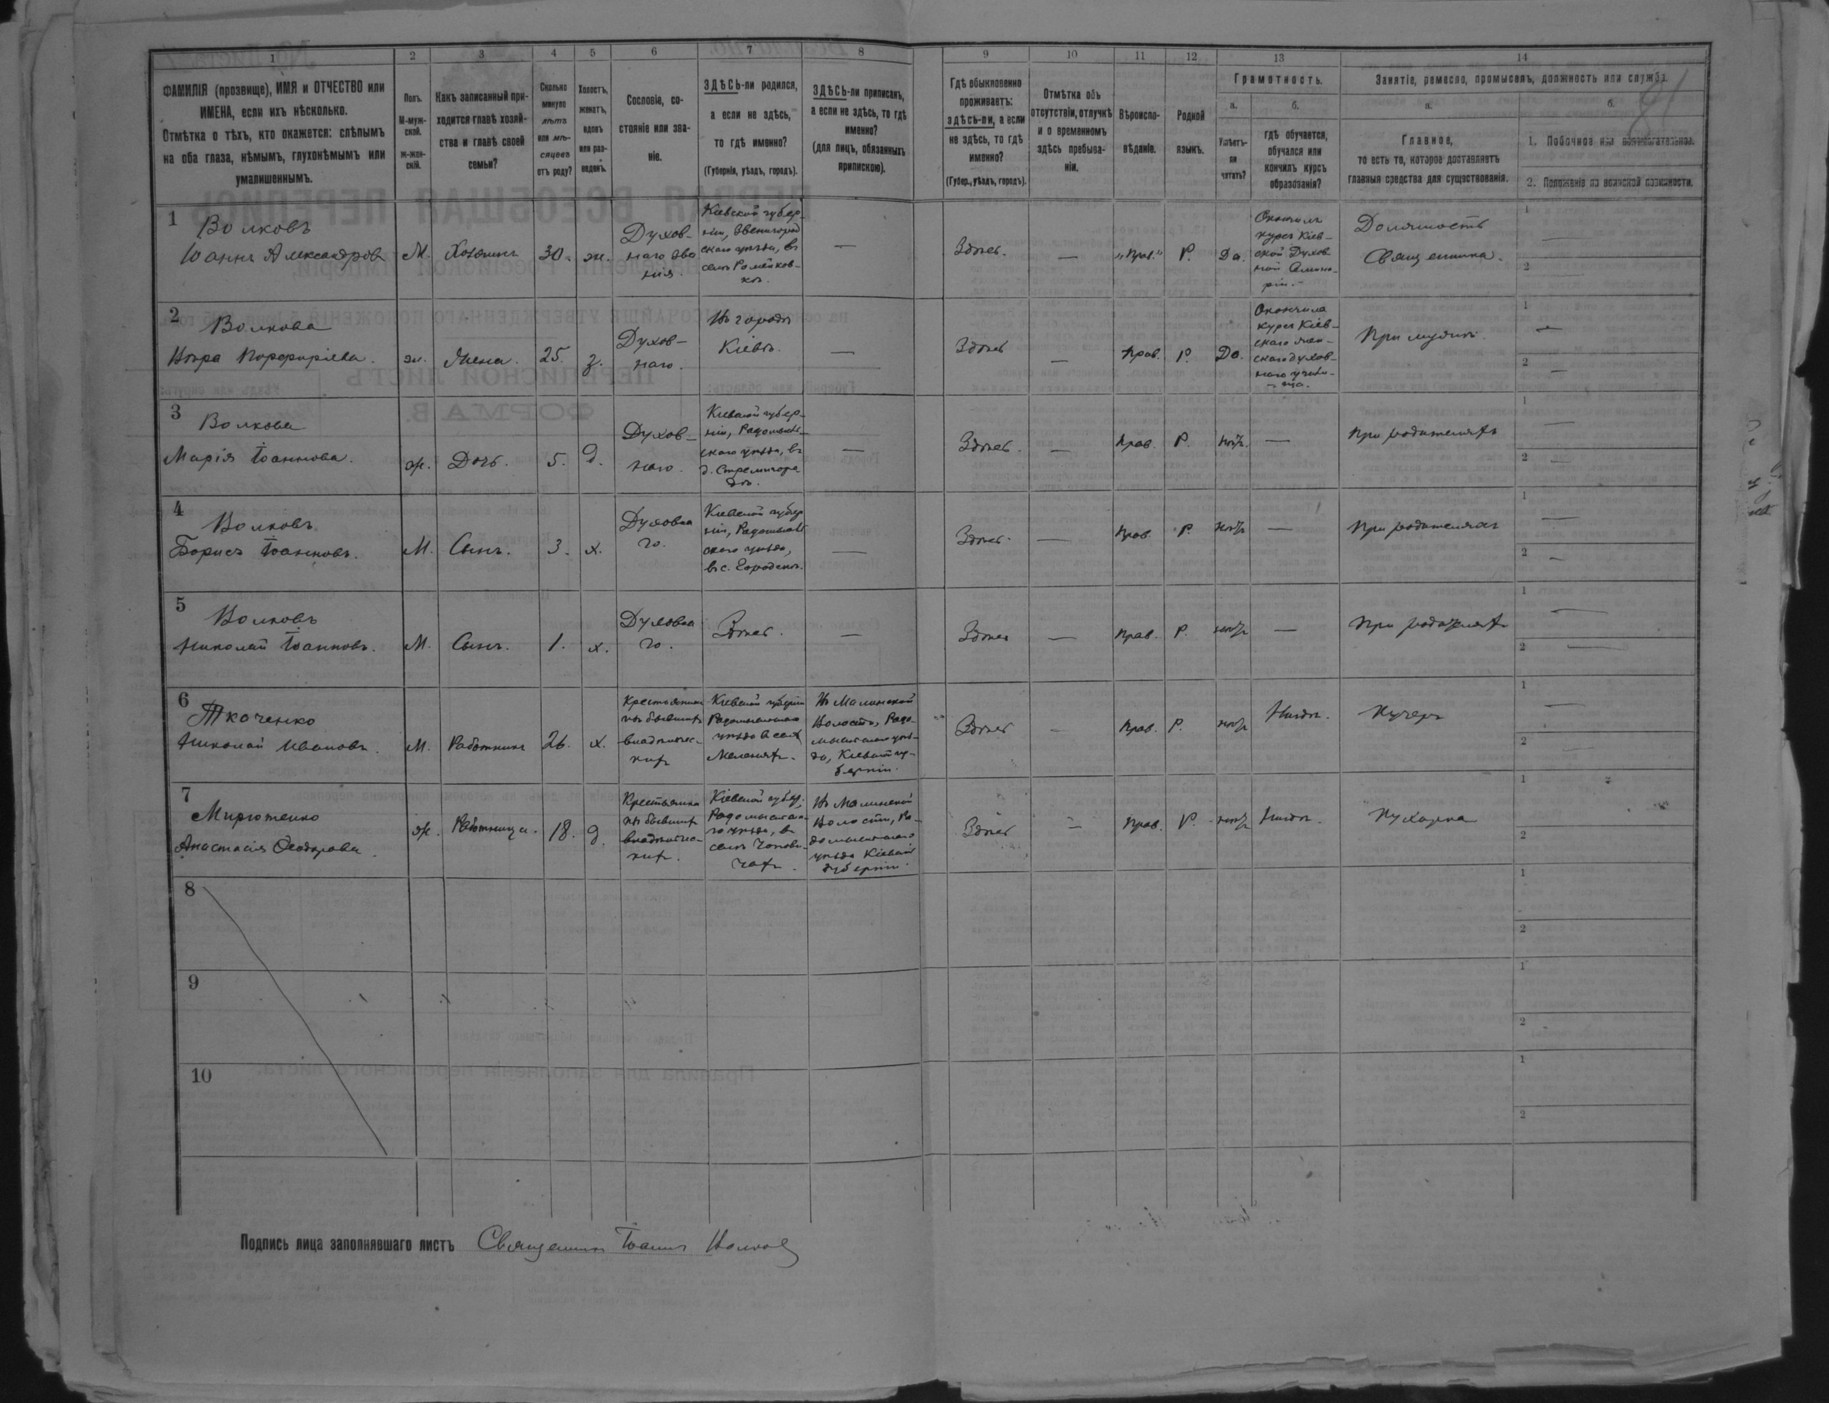 1 2 3 4 5 6 7 8 9 10 11 12 13 14
ФАМИЛІЯ (прозвище), ИМЯ и ОТЧЕСТВО или
ИМЕНА, если ихъ нѣсколько.
Отмѣтка о тѣхъ, кто окажется: слѣпымъ
на оба глаза, нѣмымъ, глухонѣмымъ или
умалишеннымъ.
Полъ.
М-муж-
ской.
ж-жен-
скій.
Какъ записанный при-
ходится главѣ хозяй-
ства и главѣ своей
семьи?
Сколько
минуло
лѣтъ
или мѣ-
сяцевъ
отъ роду?
Холостъ,
женатъ,
вдовъ
или раз-
веденъ.
Сословіе, со-
стояніе или зва-
ніе.
ЗДѢСЬ-ли родился,
а если не здѣсь,
то гдѣ именно?
(Губернія, уѣздъ, городъ).
ЗДѢСЬ-ли приписанъ,
а если не здѣсь, то гдѣ
именно?
(для лицъ, обязанныхъ
припискою).
Гдѣ обыкновенно
проживаетъ:
здѣсь-ли, а если
не здѣсь, то гдѣ
именно?
(Губер., уѣздъ, городъ).
Отмѣтка объ
отсутствіи, отлучкѣ
и о временномъ
здѣсь пребыва-
ніи.
Вѣроиспо-
вѣданіе.
Родной
языкъ.
Грамотность.
а.
Умѣетъ-
ли
читать?
б.
гдѣ обучается,
обучался или
кончилъ курсъ
образованія?
Занятіе, ремесло, промыселъ, должность или служба.
а.
Главное,
то есть то, которое доставляетъ
главныя средства для существованія.
б.
1. Побочное или вспомогательное.
2. Положеніе по воинской повинности.
1
Волковъ
Іоаннъ Александров
М.
Хозяинъ
30.
ж.
Духов-
наго зва
нія.
Кіевской губер-
ніи, Звенигород
скаго уѣзда, въ
селѣ
—
Здѣсь.
—
"Прав."
Р.
Да.
Окончилъ
курсъ Кіев-
ской Духов-
ной Семина-
ріи.
Должность
Священника.
1
2
2
Волкова
Порфиріева.
ж.
Жена.
25.
з.
Духов-
наго.
Въ городѣ
Кіевѣ.
—
Здѣсь
—
Прав.
Р.
Да.
Окончила
курсъ Кіев-
скаго жен-
скаго духов-
наго учили-
ща.
При мужѣ.
1
2
3
Волкова
Марія Іоаннова.
ж.
Дочь.
5.
д.
Духов-
наго.
Кіевской губер-
ніи, Радомысль-
скаго уѣзда, въ
д. Стремигоро
дѣ.
—
Здѣсь.
—
Прав.
Р.
нѣтъ
—
При родителяхъ
1
2
4
Волковъ
Борисъ Іоанновъ.
М.
Сынъ.
3.
х.
Духовна
го.
Кіевской губер
ніи, Радомысль
скаго уѣзда,
въ с. Городскѣ.
—
Здѣсь.
—
Прав.
Р.
нѣтъ
—
При родителяхъ
1
2
5
Волковъ
Николай Іоанновъ.
М.
Сынъ.
1.
х.
Духовна
го.
Здѣсь.
—
Здѣсь
—
Прав.
Р.
нѣтъ
—
При родителяхъ
1
2
6
Ткаченко
Николай Ивановъ.
М.
Работникъ
26.
х.
Крестьянинъ
изъ бывшихъ
владѣльчес-
кихъ
Кіевской губерніи
Радомысльскаго
уѣзда въ селѣ
Меленяхъ.
Въ Малинской
Волости, Радо-
мысльскаго уѣз-
да, Кіевской гу-
берніи.
Здѣсь
—
Прав.
Р.
нѣтъ
Нигдѣ.
Кучеръ
1
2
7
Мирютенко
Анастасія Ѳеодорова.
ж.
Работница.
18.
д.
Крестьянка
изъ бывшихъ
владѣльчес-
кихъ.
Кіевской губер.
Радомысльска-
го уѣзда, въ
селѣ Чопови-
чахъ.
Въ Малинской
Волости, Ра-
домысльскаго
уѣзда Кіевской
губерніи.
Здѣсь
—
Прав.
Р.
нѣтъ
Нигдѣ.
Кухарка
1
2
8
1
2
9
1
2
10
1
2
Подпись лица заполнявшаго листъ Священникъ Іоаннъ Волковъ